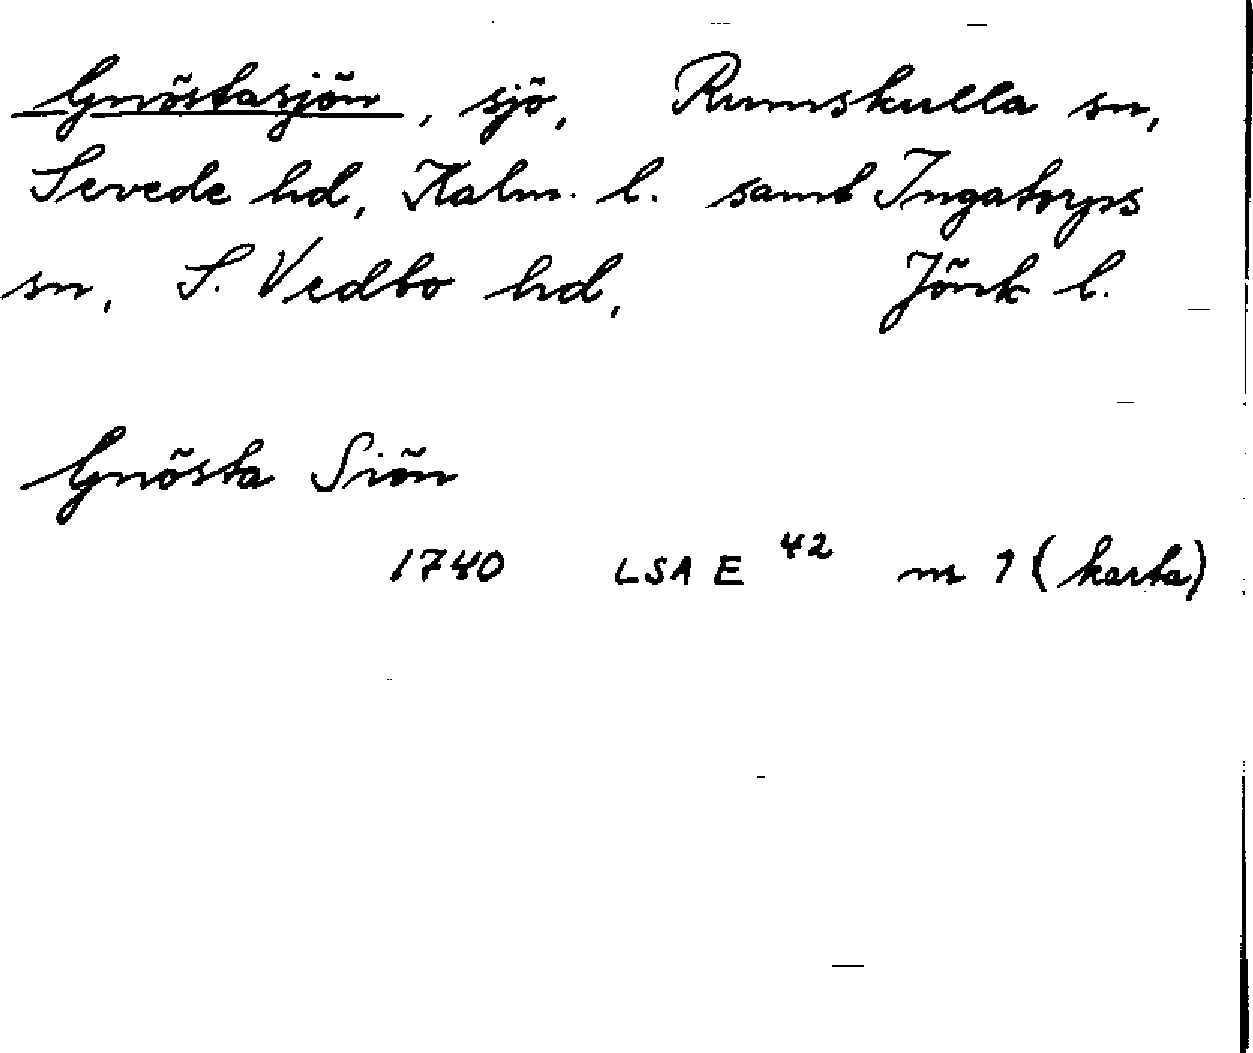 Gnöstasjön, sjö, Rumskulla sn,
Sevede hd, Kalm. l. samt Ingatorps
sn, S. Vedbo hd, Jönk l.
Gnösta Siön
1740 LSA E 42 nr 1 (karta)